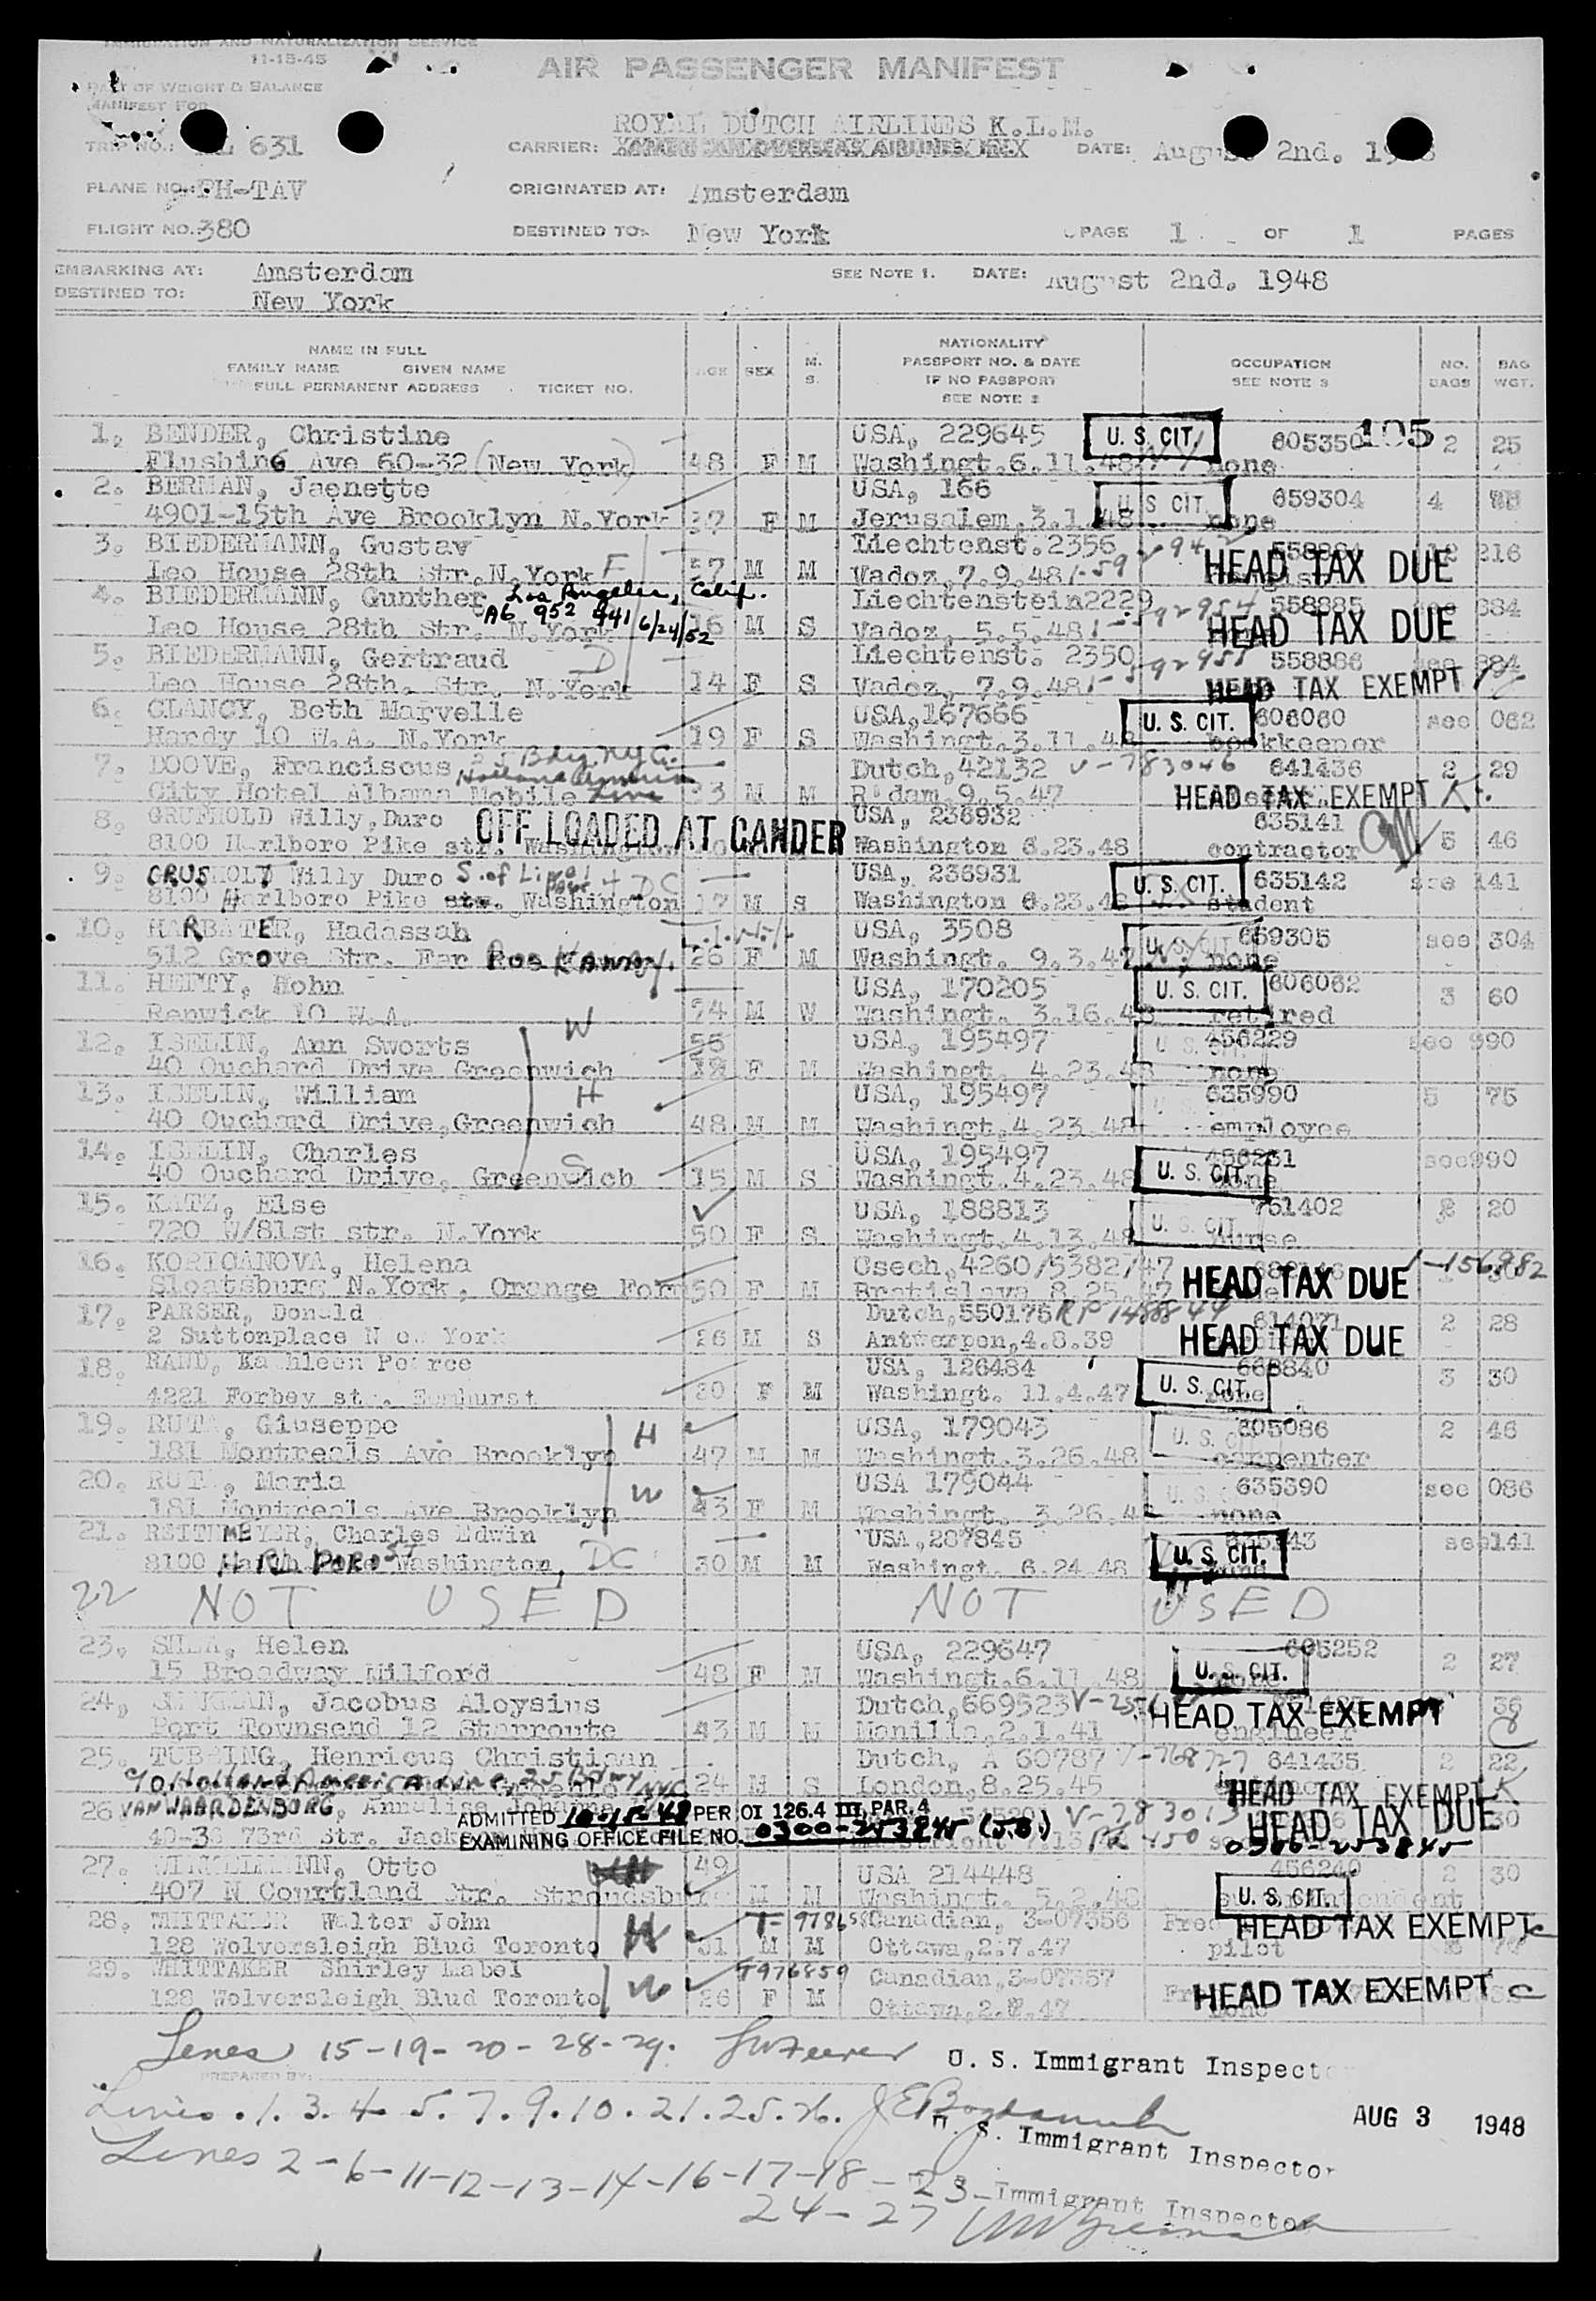 IMMIGRATION AND NATURALIZATION SERVICE
11-15-45
AIR PASSENGER MANIFEST
PART OF WEIGHT & BALANCE
MANIFEST FOR
ROYAL DUTCH AIRLINES K.L.M.
TRIP NO.: 631 CARRIER: DATE: August 2nd.
PLANE NO.: PH-TAV ORIGINATED AT: Amsterdam
FLIGHT NO. 380 DESTINED TO: New York PAGE 1 OF 1 PAGES
EMBARKING AT: Amsterdam SEE NOTE 1. DATE: August 2nd. 1948
DESTINED TO: New York
NAME IN FULL NATIONALITY
FAMILY NAME GIVEN NAME AGE SEX M. S. PASSPORT NO. & DATE OCCUPATION NO. BAGS BAG WGT.
FULL PERMANENT ADDRESS TICKET NO. IF NO PASSPORT SEE NOTE 3
SEE NOTE 2
1. BENDER, Christine USA, 229645 U. S. CIT. 605350 105 2 25
Flushing Ave 60-32 (New York) 48 F M Washingt.6.11.48 none
2. BERMAN, Jaenette USA, 166 U S CIT. 659304 4
4901-15th Ave Brooklyn N.York 37 F M Jerusalem,3.1.48 none
3. BIEDERMANN, Gustav Liechtenst.2356 216
Leo House 28th Str.N.York F 57 M M Vadoz,7.9.48 HEAD TAX DUE
4. BIEDERMANN, Gunther Los Angeles, Calif. Liechtenstein2229 558885 384
A6 952 441 6/24/52
Leo House 28th Str. N.York 16 M S Vadoz, 5.5.48 HEAD TAX DUE
5. BIEDERMANN, Gertraud D Liechtenst. 2350 558886 see 384
Leo House 28th. Str. N.York 14 F S Vadoz, 7.9.48 HEAD TAX EXEMPT
6. CLANCY, Beth Marvelle USA,167666 U. S. CIT. 606060 see 062
Hardy 10 W.A. N.York 19 F S Washingt.3.11.48 bookkeeper
7. DOOVE, Franciscus Dutch,42132 V-783046 641436 2 29
City Hotel Albama Mobile Line 33 M M R'dam,9.5.47 HEAD TAX EXEMPT
8. GRUEHOLD Willy,Duro OFF LOADED AT GANDER USA, 236932 635141 5 46
8100 Marlboro Pike str. Washington Washington 6.23.48 contractor
9. Willy Duro USA, 236931 U. S. CIT. 635142 see 141
8100 Marlboro Pike str. Washington 17 M S Washington 6.23.48 student
10. HARBATER, Hadassah USA, 3508 659305 see 304
512 Grove Str. Far Rockaway. 26 F M Washingt. 9.3.47 none
11. HEFTY, Hohn USA, 170205 U. S. CIT. 606062 3 60
Renwick 10 W.A. 74 M W Washingt. 3.16.48 retired
12. ISELIN, Ann Sworts W USA, 195497 456229 see 990
40 Ouchard Drive Greenwich F M Washingt. 4.23.48 none
13. ISELIN, William H USA, 195497 635990 5 75
40 Ouchard Drive,Greenwich 48 M M Washingt.4.23.48 employee
14. ISELIN, Charles S USA, 195497 456231 see990
40 Ouchard Drive, Greenwich 15 M S Washingt.4.23.48 U. S. CIT. none
15. KATZ, Else USA, 188813 U. S. CIT. 751402 2 20
720 W/81st str. N.York 50 F S Washingt.4.13.48 nurse
16. KORICANOVA, Helena Csech,4260/5382/47 1-156982
Sloatsburg N.York, Orange Form 50 F M Bratislava 8.25.47 HEAD TAX DUE
17. PARSER, Donald Dutch,550175 614071 2 28
2 Suttonplace New York 26 M S Antwerpen,4.8.39 HEAD TAX DUE
18. RAND, Kathleen Pearce USA, 126484 668840 3 30
4221 Forbey str. Elmhurst 30 F M Washingt. 11.4.47 U. S. CIT. none
19. RUTA, Giuseppe H USA, 179043 605086 2 46
181 Montreals Ave Brooklyn 47 M M Washingt.3.26.48 carpenter
20. RUTA, Maria W USA 179044 635390 see 086
181 Montreals Ave Brooklyn 43 F M Washingt. 3.26.48 none
21. REITEMEYER, Charles Edwin USA,237845 see141
8100 Washington, DC 30 M M Washingt. 6.24.48 U. S. CIT.
22 NOT USED NOT USED
23. SHEA, Helen USA, 229647 605252 2 27
15 Broadway Milford 48 F M Washingt.6.11.48 U. S. CIT. none
24. Jacobus Aloysius Dutch,669523 36
Port Townsend 12 Starroute 43 M M Manilla,2.1.41 HEAD TAX EXEMPT engineer
25. TUBBING, Henricus Christiaan Dutch, A 60787 V-768727 641435 2 22
c/o Holland America Line 24 M S London,8.25.45 HEAD TAX EXEMPT
26 VAN WAARDENBORG, V-783013 30
ADMITTED 10/15/48 PER OI 126.4 III, PAR. 4 HEAD TAX DUE
40-36 73rd Str. EXAMINING OFFICE FILE NO. 0300-253845 (J.B.) 0300-253845
27. WINKELMANN, Otto 49 USA 214448 456240 2 30
407 N Courtland Str. Stroudsburg M M Washingt. 5.2.48 U. S. CIT.
28. WHITTAKER Walter John H Canadian, 3-07356
128 Wolversleigh Blud Toronto 31 M M Ottawa,2.7.47 HEAD TAX EXEMPT pilot
29. WHITTAKER Shirley Mabel W T976859 Canadian,3-07357
128 Wolversleigh Blud Toronto 26 F M Ottawa,2.7.47 HEAD TAX EXEMPT none
Lines 15-19-20-28-29. U. S. Immigrant Inspector
PREPARED BY:
Lines. 1. 3. 4. 5. 7. 9. 10. 21. 25. 26. AUG 3 1948
U. S. Immigrant Inspector
Lines 2-6-11-12-13-14-16-17-18-23-
24-27 Immigrant Inspector